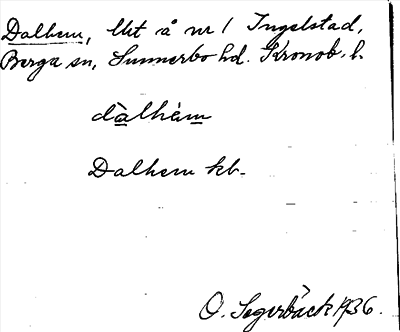 Dalhem, lht å nr 1 Ingelstad,
Berga sn, Sunnerbo hd. Kronob. l.
dàlhém
Dalhem kb.
O. Segerbäck 1936.